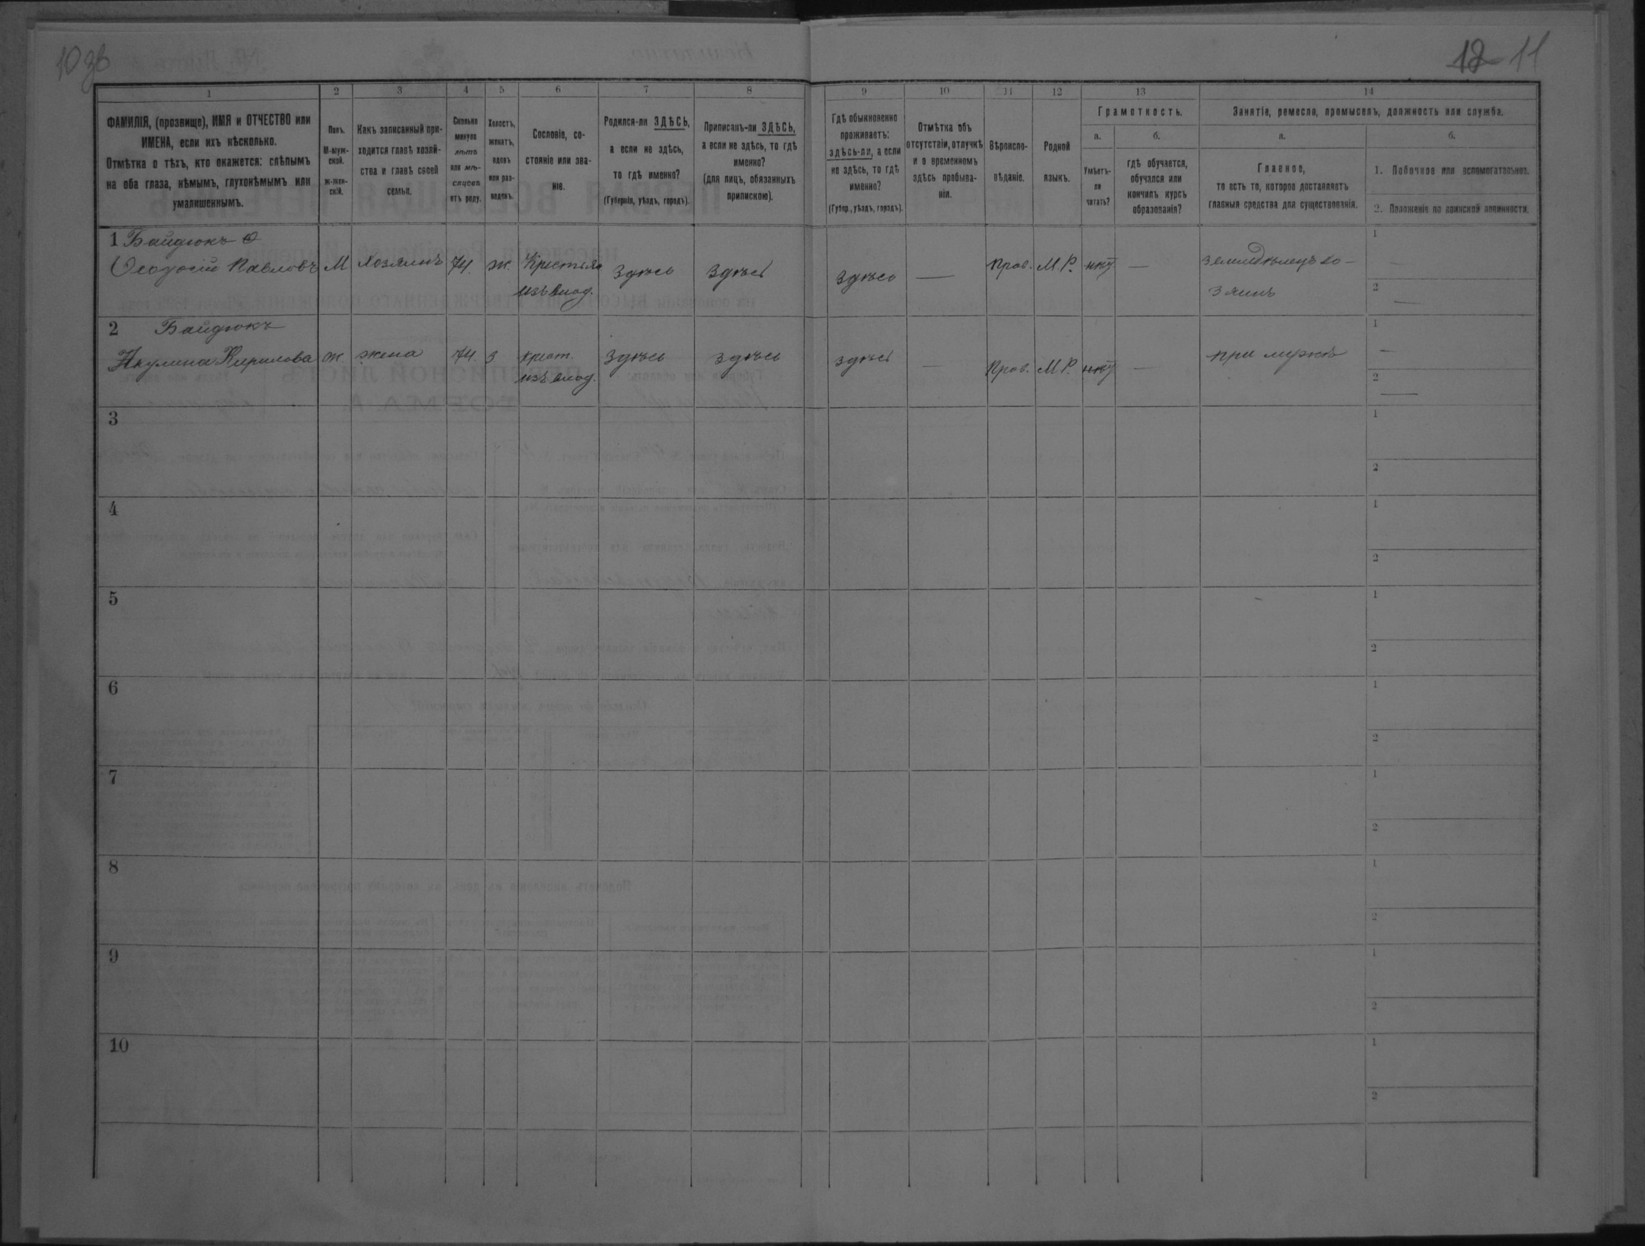 10 зв
12 11
1
2
3
4
5
6
7
8
9
10
11
12
13
14
ФАМИЛІЯ, (прозвище), ИМЯ и ОТЧЕСТВО или
ИМЕНА, если ихъ нѣсколько.
Отмѣтка о тѣхъ, кто окажется: слѣпымъ
на оба глаза, нѣмымъ, глухонѣмымъ или
умалишеннымъ.
Полъ.
М-муж-
ской.
ж-жен-
скій.
Какъ записанный при-
ходится главѣ хозяй-
ства и главѣ своей
семьи.
Сколько
минуло
лѣтъ
или мѣ-
сяцевъ
отъ роду.
Холостъ,
женатъ,
вдовъ
или раз-
веденъ.
Сословіе, со-
стояніе или зва-
ніе.
Родился-ли ЗДѢСЬ,
а если не здѣсь,
то гдѣ именно?
(Губернія, уѣздъ, городъ).
Приписанъ-ли ЗДѢСЬ,
а если не здѣсь, то гдѣ
именно?
(для лицъ, обязанныхъ
припискою).
Гдѣ обыкновенно
проживаетъ:
здѣсь-ли, а если
не здѣсь, то гдѣ
именно?
(Губер., уѣздъ, городъ).
Отмѣтка объ
отсутствіи, отлучкѣ
и о временномъ
здѣсь пребыва-
ніи.
Вѣроиспо-
вѣданіе.
Родной
языкъ.
Грамотность.
а.
б.
Умѣетъ-
ли
читать?
гдѣ обучается,
обучался или
кончилъ курсъ
образованія?
Занятіе, ремесло, промыселъ, должность или служба.
а.
б.
Главное,
то есть то, которое доставляетъ
главныя средства для существованія.
1. Побочное или вспомогательное.
2. Положеніе по воинской повинности.
1 Байдюкъ
Ѳеодосій Павловъ М Хозяинъ 74 ж. Крестья
изъ влад. здѣсь здѣсь здѣсь — Прав. М.Р. нѣт — земледѣлецъ хо-
зяинъ
1 —
2 —
2 Байдюкъ
Акулина Кирилова ж жена 74 з крест.
изъ влад. здѣсь здѣсь здѣсь — Прав. М.Р. нѣт — при мужѣ
1 —
2 —
3
1
2
4
1
2
5
1
2
6
1
2
7
1
2
8
1
2
9
1
2
10
1
2